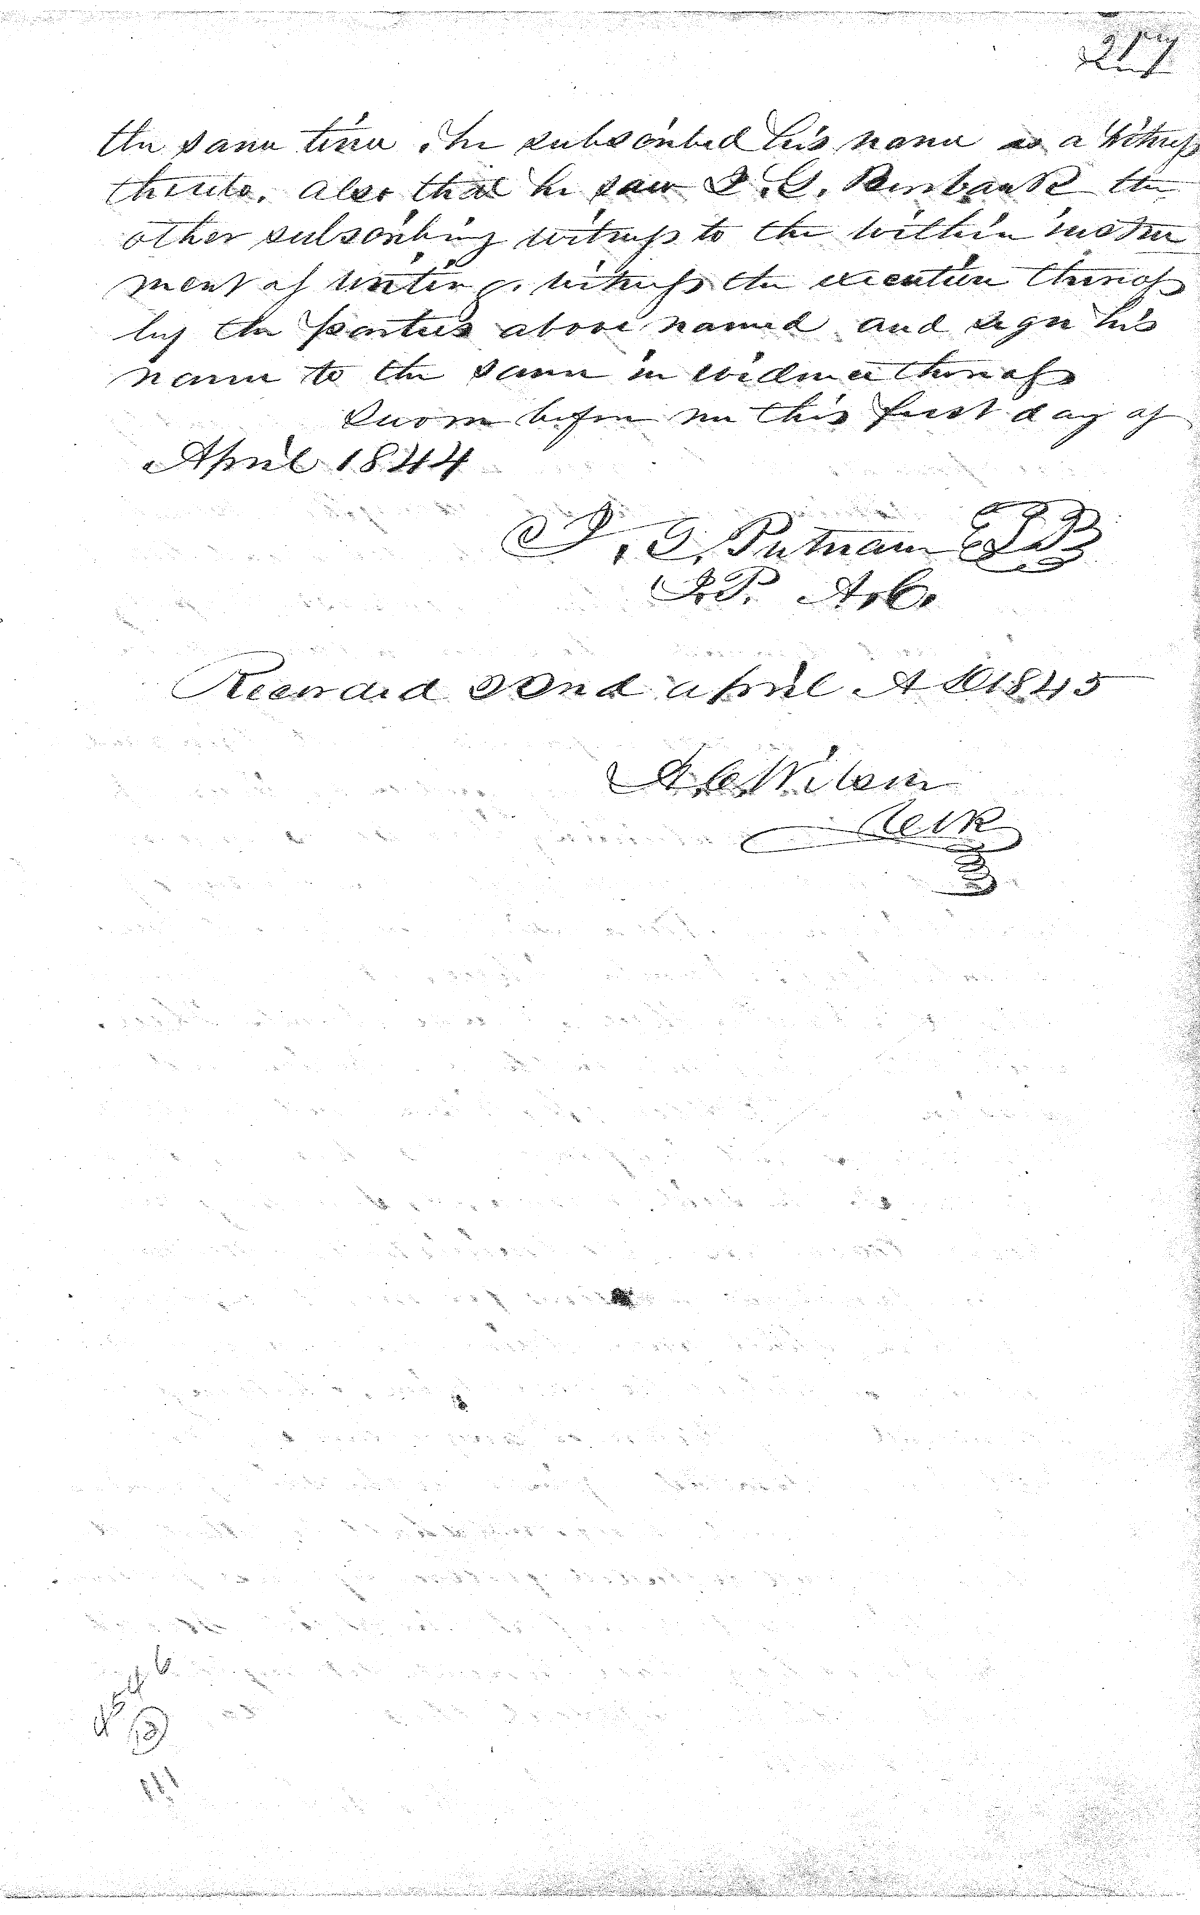 217
the same time, he subscribed his name as a Witness
thereto. also that he saw I. G. Burbank the
other subscribing witness to the within instru
ment of writing. witness the execution thereof
by the parties above named and sign his
name to the same in evidence thereof
Sworn before me this first day of
April 1844
I. G. Putnam
J.P. A.C.
Recorded 22nd april A D 1845
A. C. Wilson
Clerk
4546
12
111